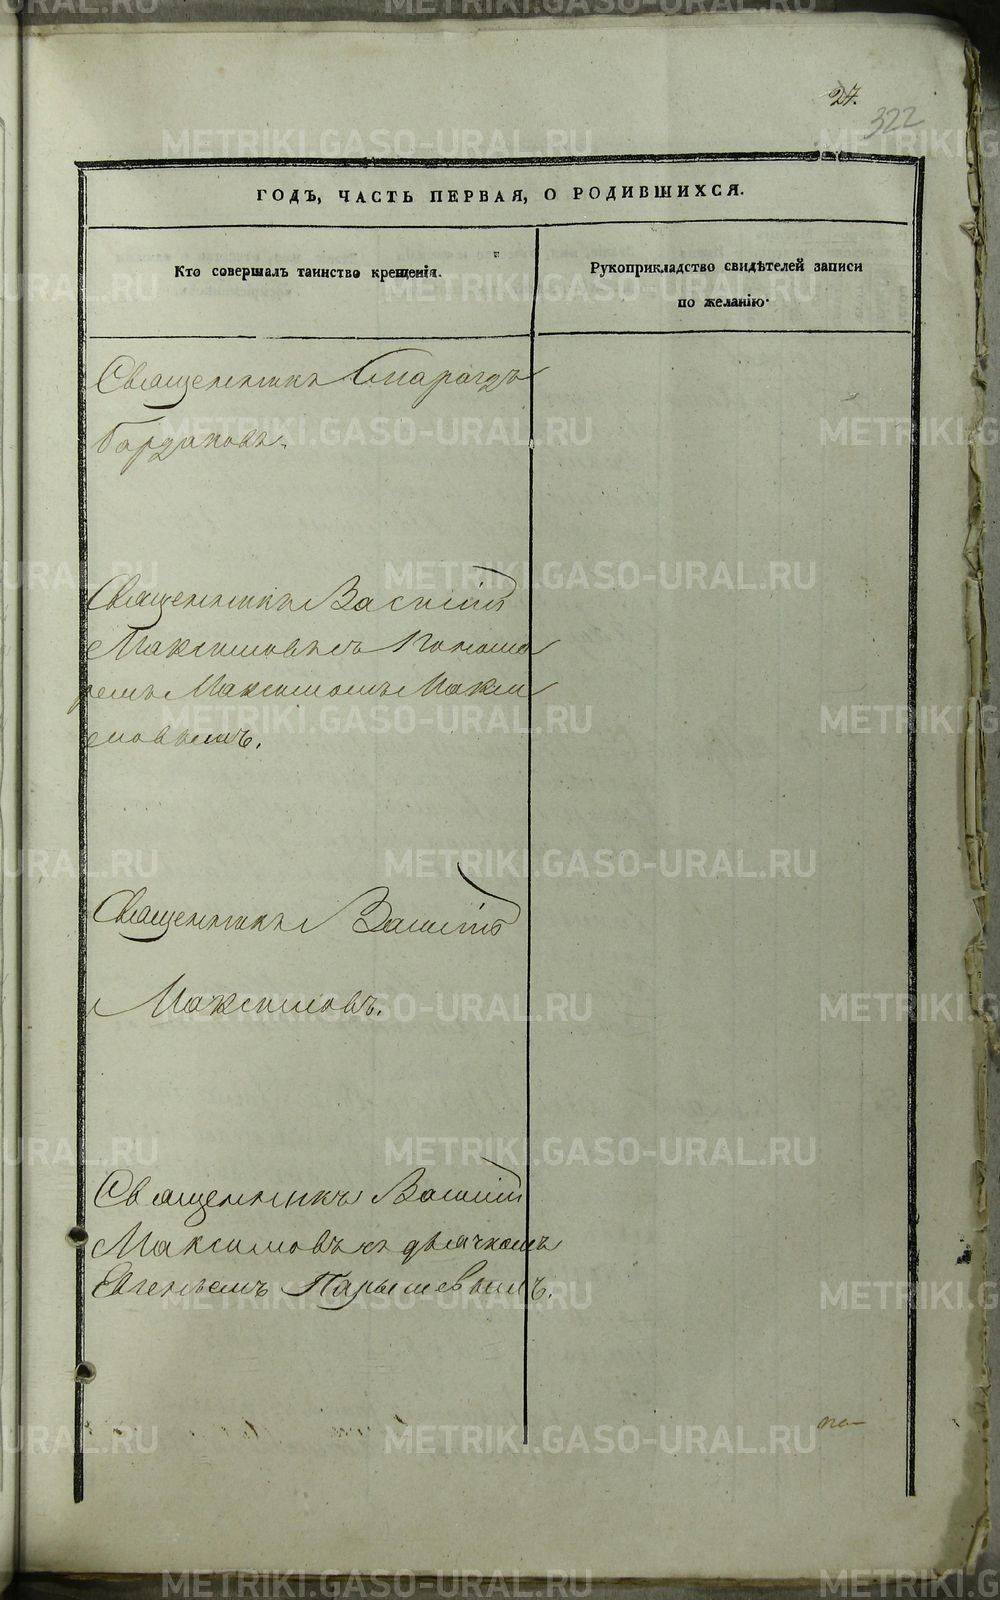 27.
322
ГОДЪ, ЧАСТЬ ПЕРВАЯ, О РОДИВШИХСЯ.
Кто совершалъ таинство крещенія.
Рукоприкладство свидѣтелей записи
по желанію.
Священникъ Смарагдъ
Бордуковъ.
Священникъ Василій
Максимовъ съ Понома
ремъ Максимомъ Макси
мовымъ.
Священникъ Василій
Максимовъ.
Священникъ Василій
Максимовъ съ дьячкомъ
Евгеньемъ Парышевымъ.
по
METRIKI.GASO-URAL.RU